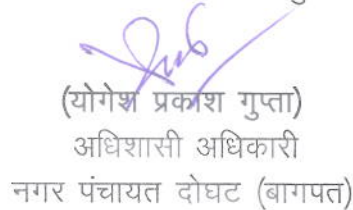 (योगेश प्रकाश गुप्ता)
अधिशासी अधिकारी
नगर पंचायत दोघट (बागपत)